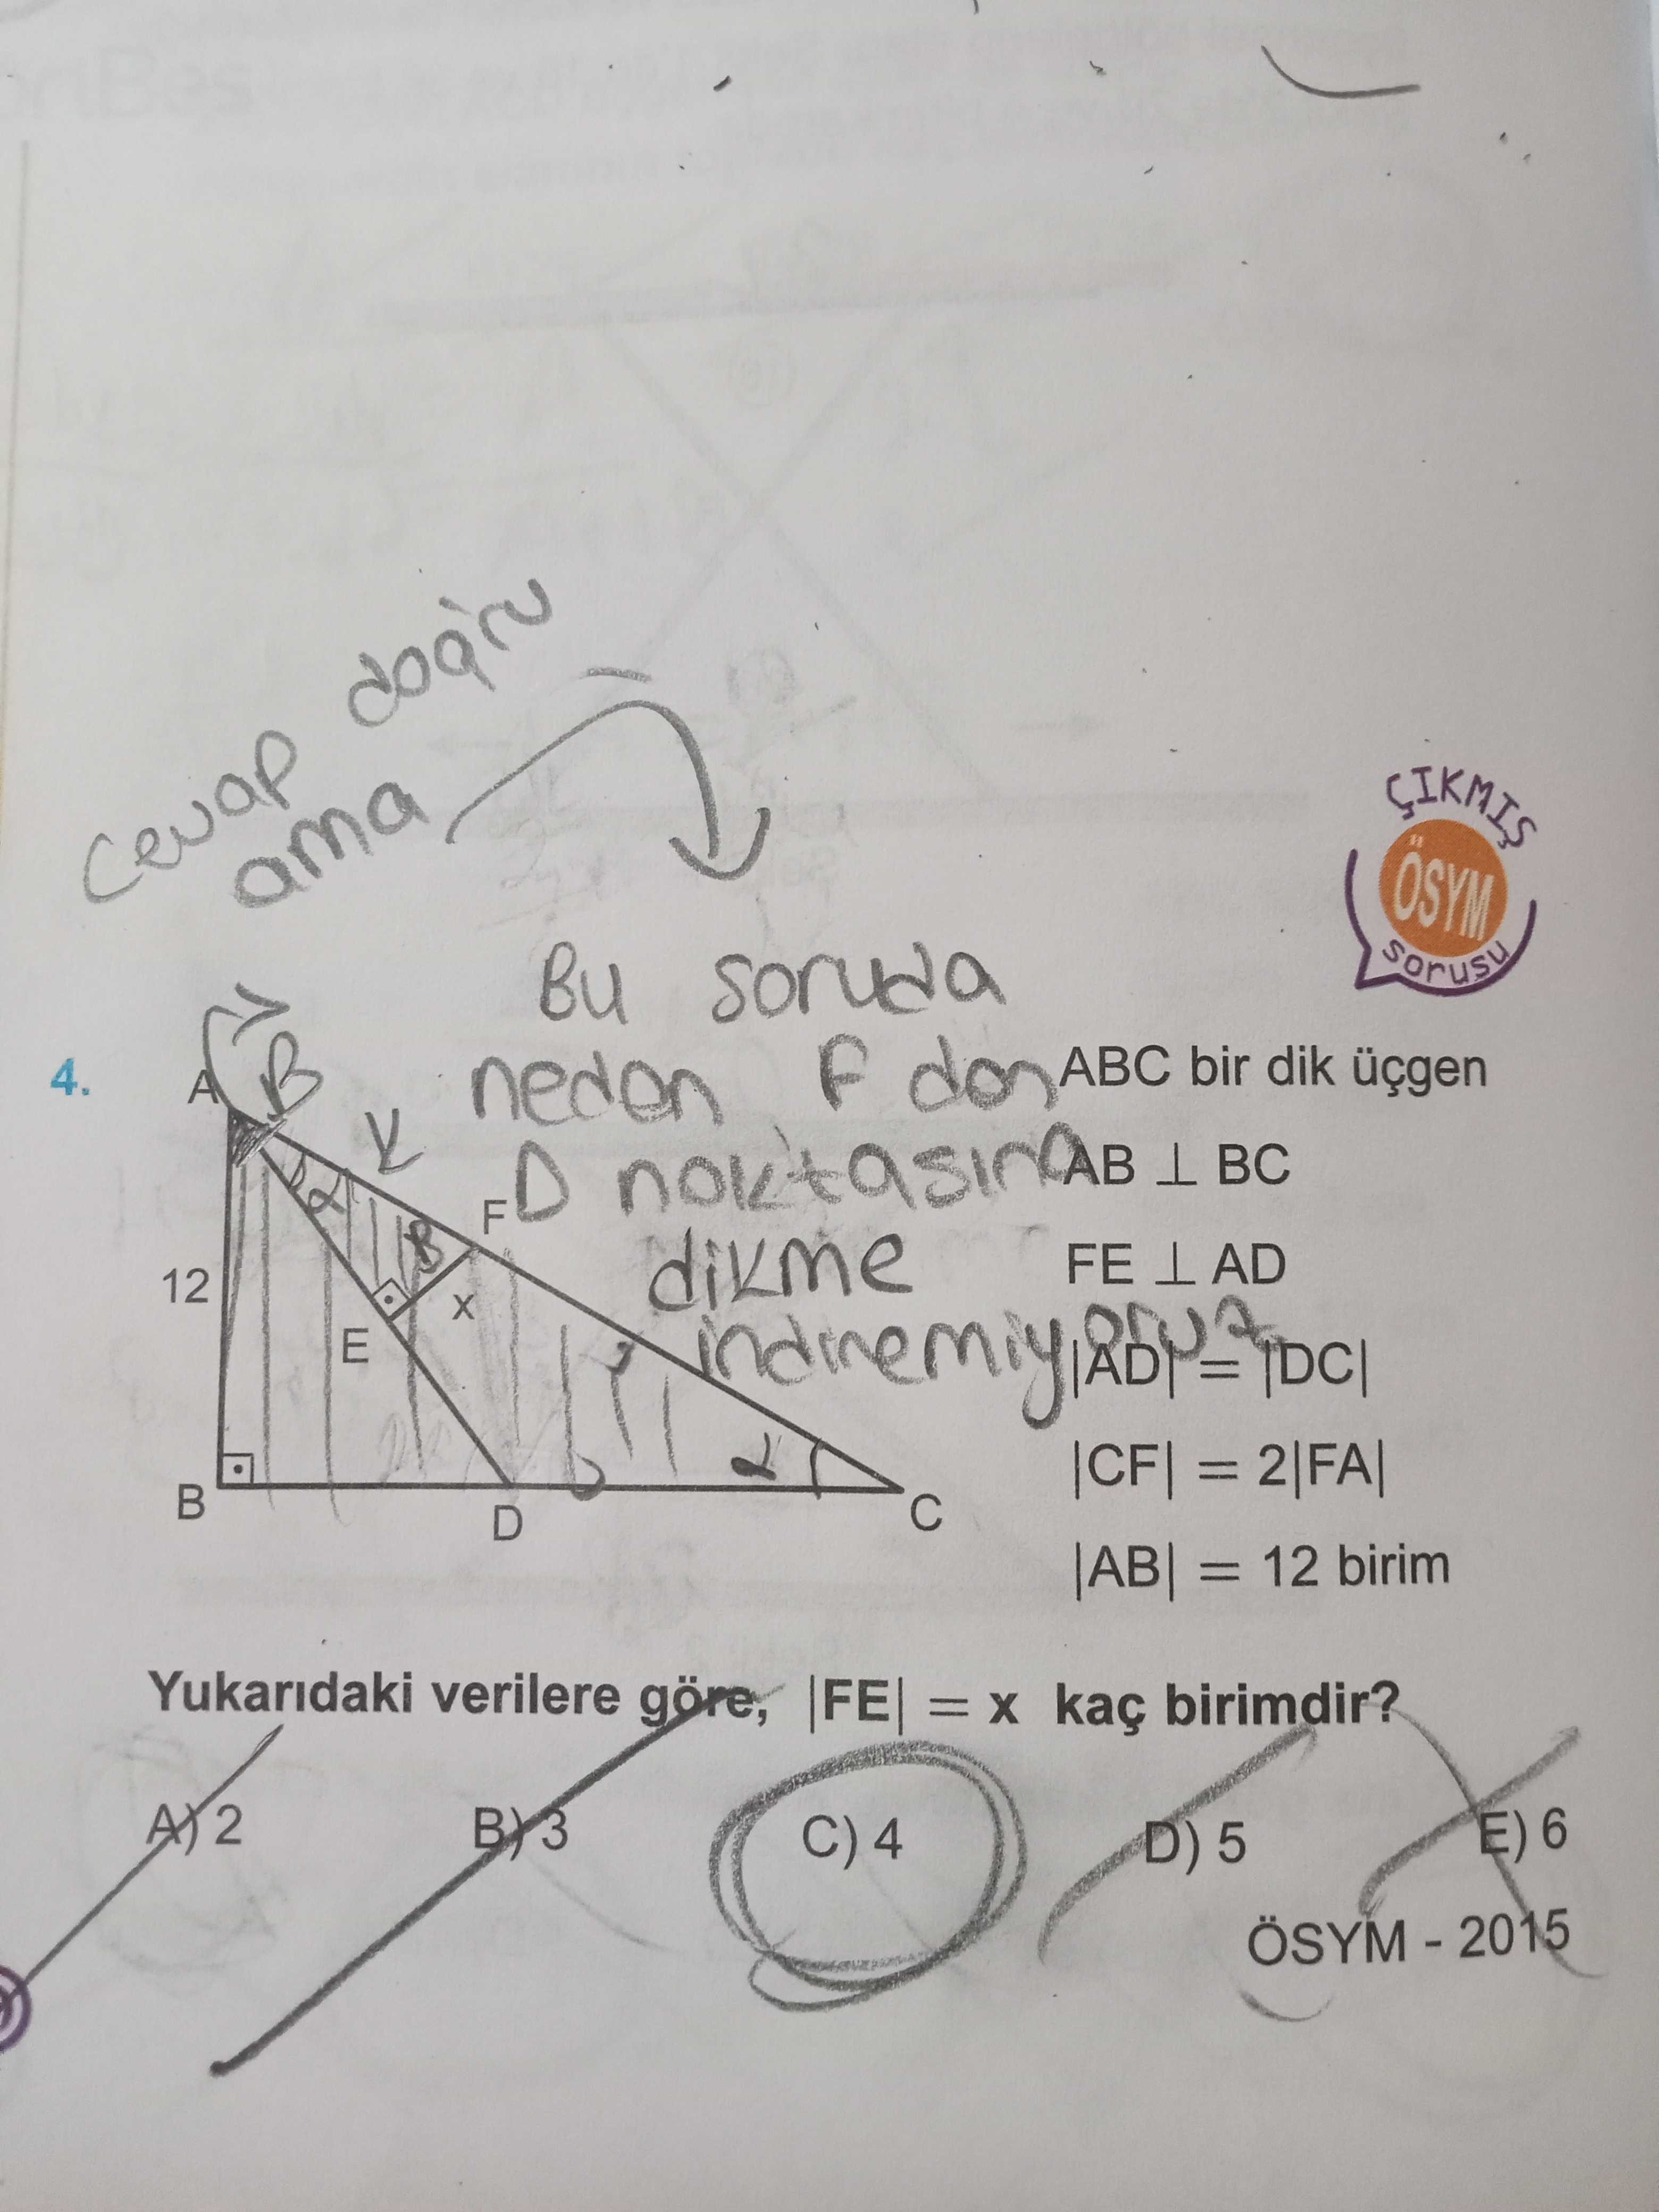 Cevap doğru
ama
ÇIKMIŞ
ÖSYM
sorusu
Bu soruda
neden F den
D noktasına
dikme
indiremiyoruz
4.
ABC bir dik üçgen
AB ⊥ BC
FE ⊥ AD
|AD| = |DC|
|CF| = 2|FA|
|AB| = 12 birim
A
B
K
F
α
B
12
x
E
α
B
D
C
Yukarıdaki verilere göre, |FE| = x kaç birimdir?
A) 2 B) 3 C) 4 D) 5 E) 6
ÖSYM - 2015